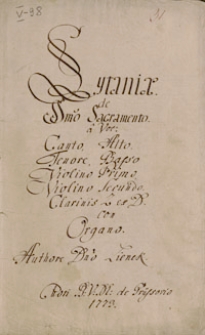 V-98
Lytaniæ.
de
Smo Sacramento.
à Voc:
Canto, Alto,
Tenore, Basso
Violino Primo,
Violino Secundo.
Clarinis 2 ex D.
con
Organo.
Authore Dno Zienek
de
1773.